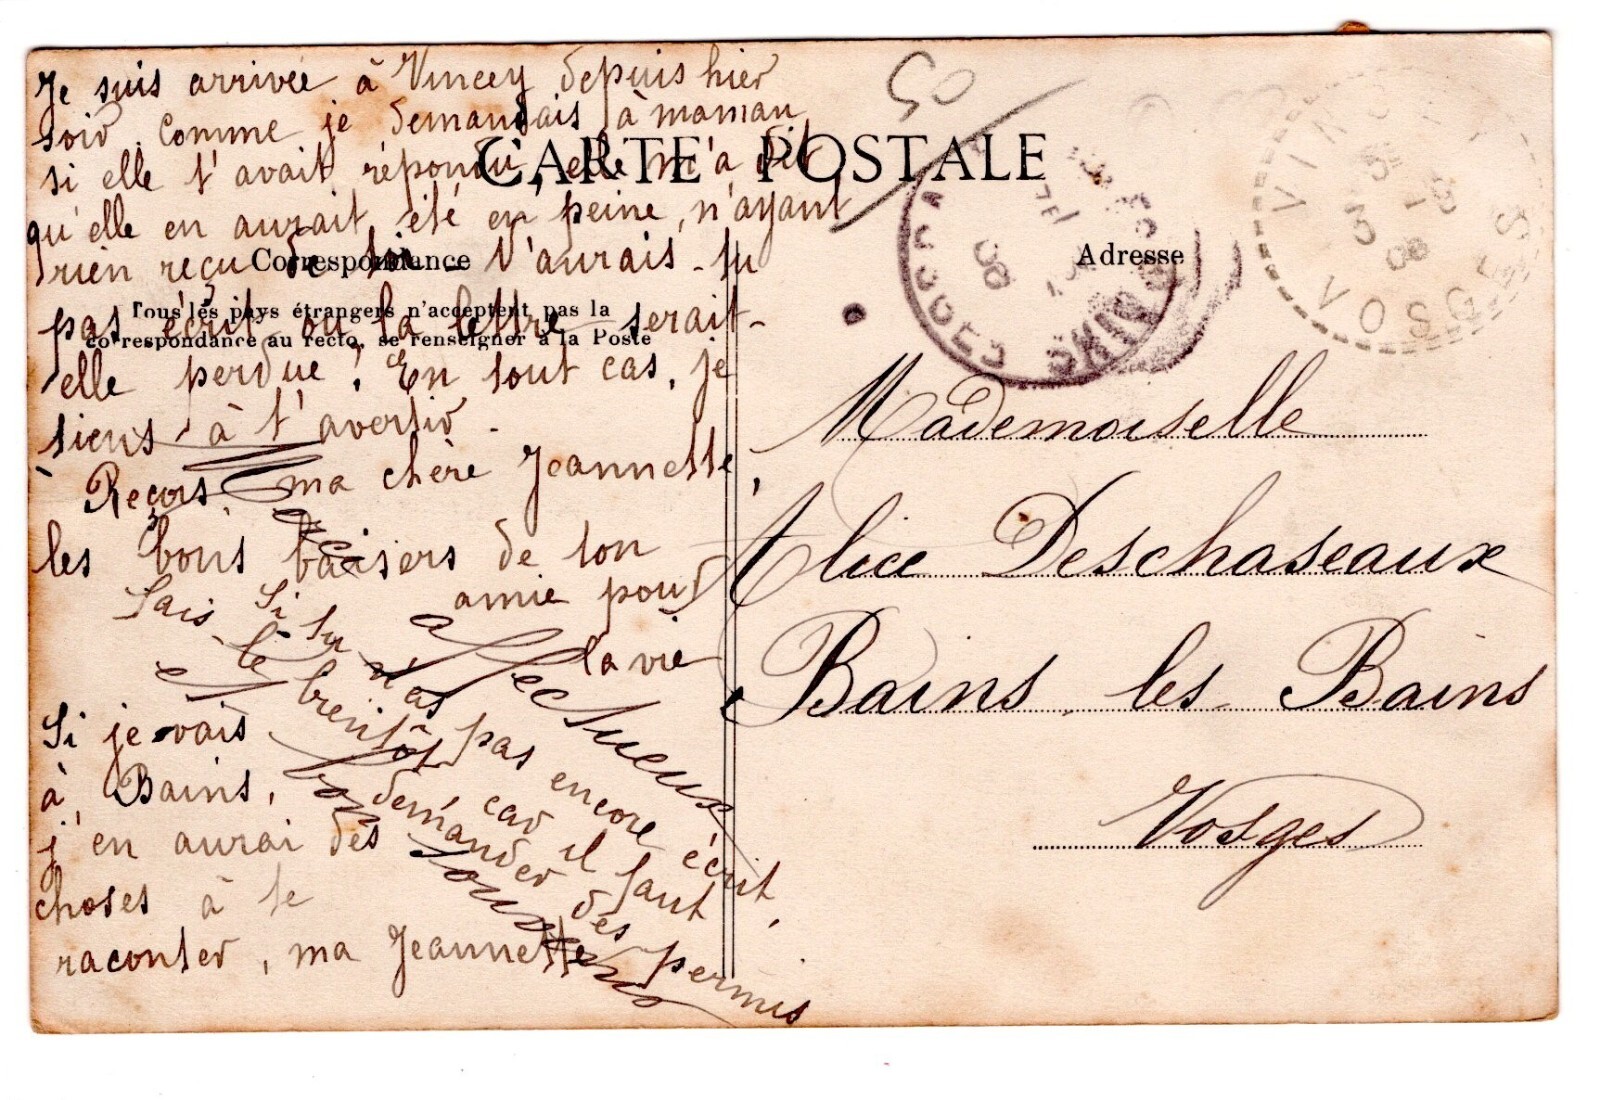 Je suis arrivée à Vincey depuis hier
soir. Comme je demandais à maman
si elle t'avait répondu, elle m'a dit
qu'elle en aurait été en peine, n'ayant
rien reçu de toi - N'aurais-tu
pas écrit ou la lettre serait-
elle perdue ! En tout cas, je
tiens à t'avertir.
Reçois ma chère Jeannette,
les bons baisers de ton
amie pour
la vie
Si je vais
à Bains,
j'en aurai des
choses à te
raconter, ma Jeannette
Si tu n'as pas encore écrit,
fais-le bientôt car il faut
demander des permis
affectueux
et bon souvenir
CARTE POSTALE
Correspondance
Tous les pays étrangers n'acceptent pas la
correspondance au recto, se renseigner à la Poste
Adresse
Mademoiselle
Alice Deschaseaux
Bains les Bains
Vosges
BAINS
VOSGES
08